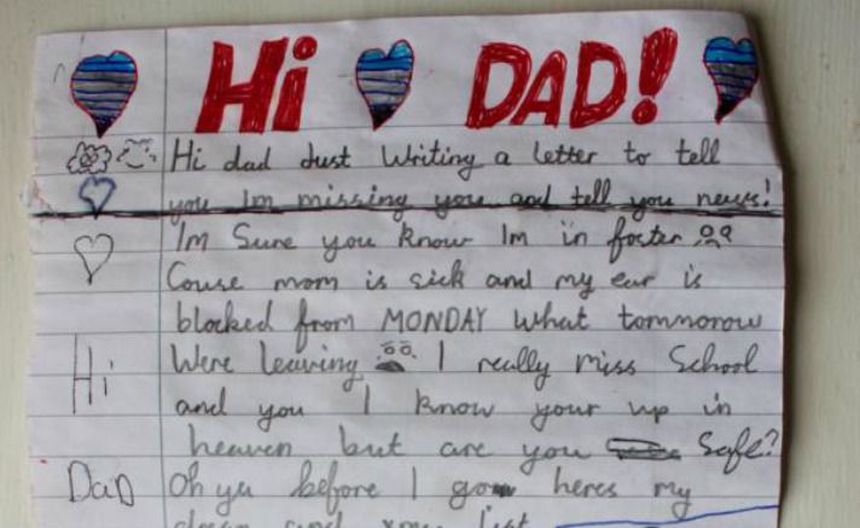 Hi DAD!
Hi dad Just Writing a letter to tell
you Im missing you and tell you news!
Im Sure you know Im in foster
Couse mom is sick and my ear is
blocked from MONDAY What tommorow
Were leaving I really miss School
Hi
and you I know your up in
heaven but are you Safe?
DaD
Oh ya before I go heres my
and xmas list